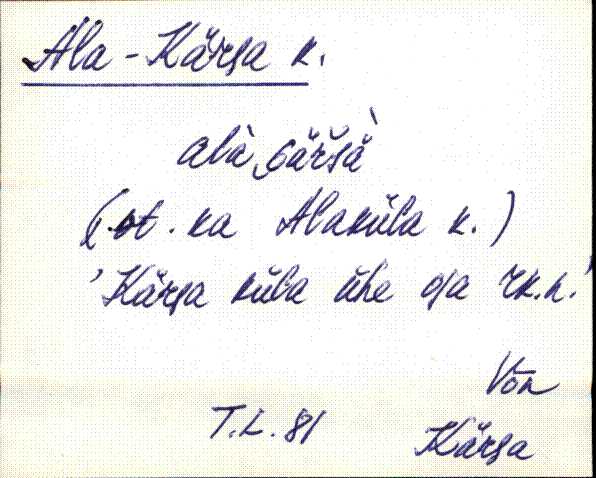 Ala-Kärsa k.
alà
(vt. ka Alaküla k.)
'Kärsa küla ühe osa rk.n.'
Võn
T.L. 81
Kärsa